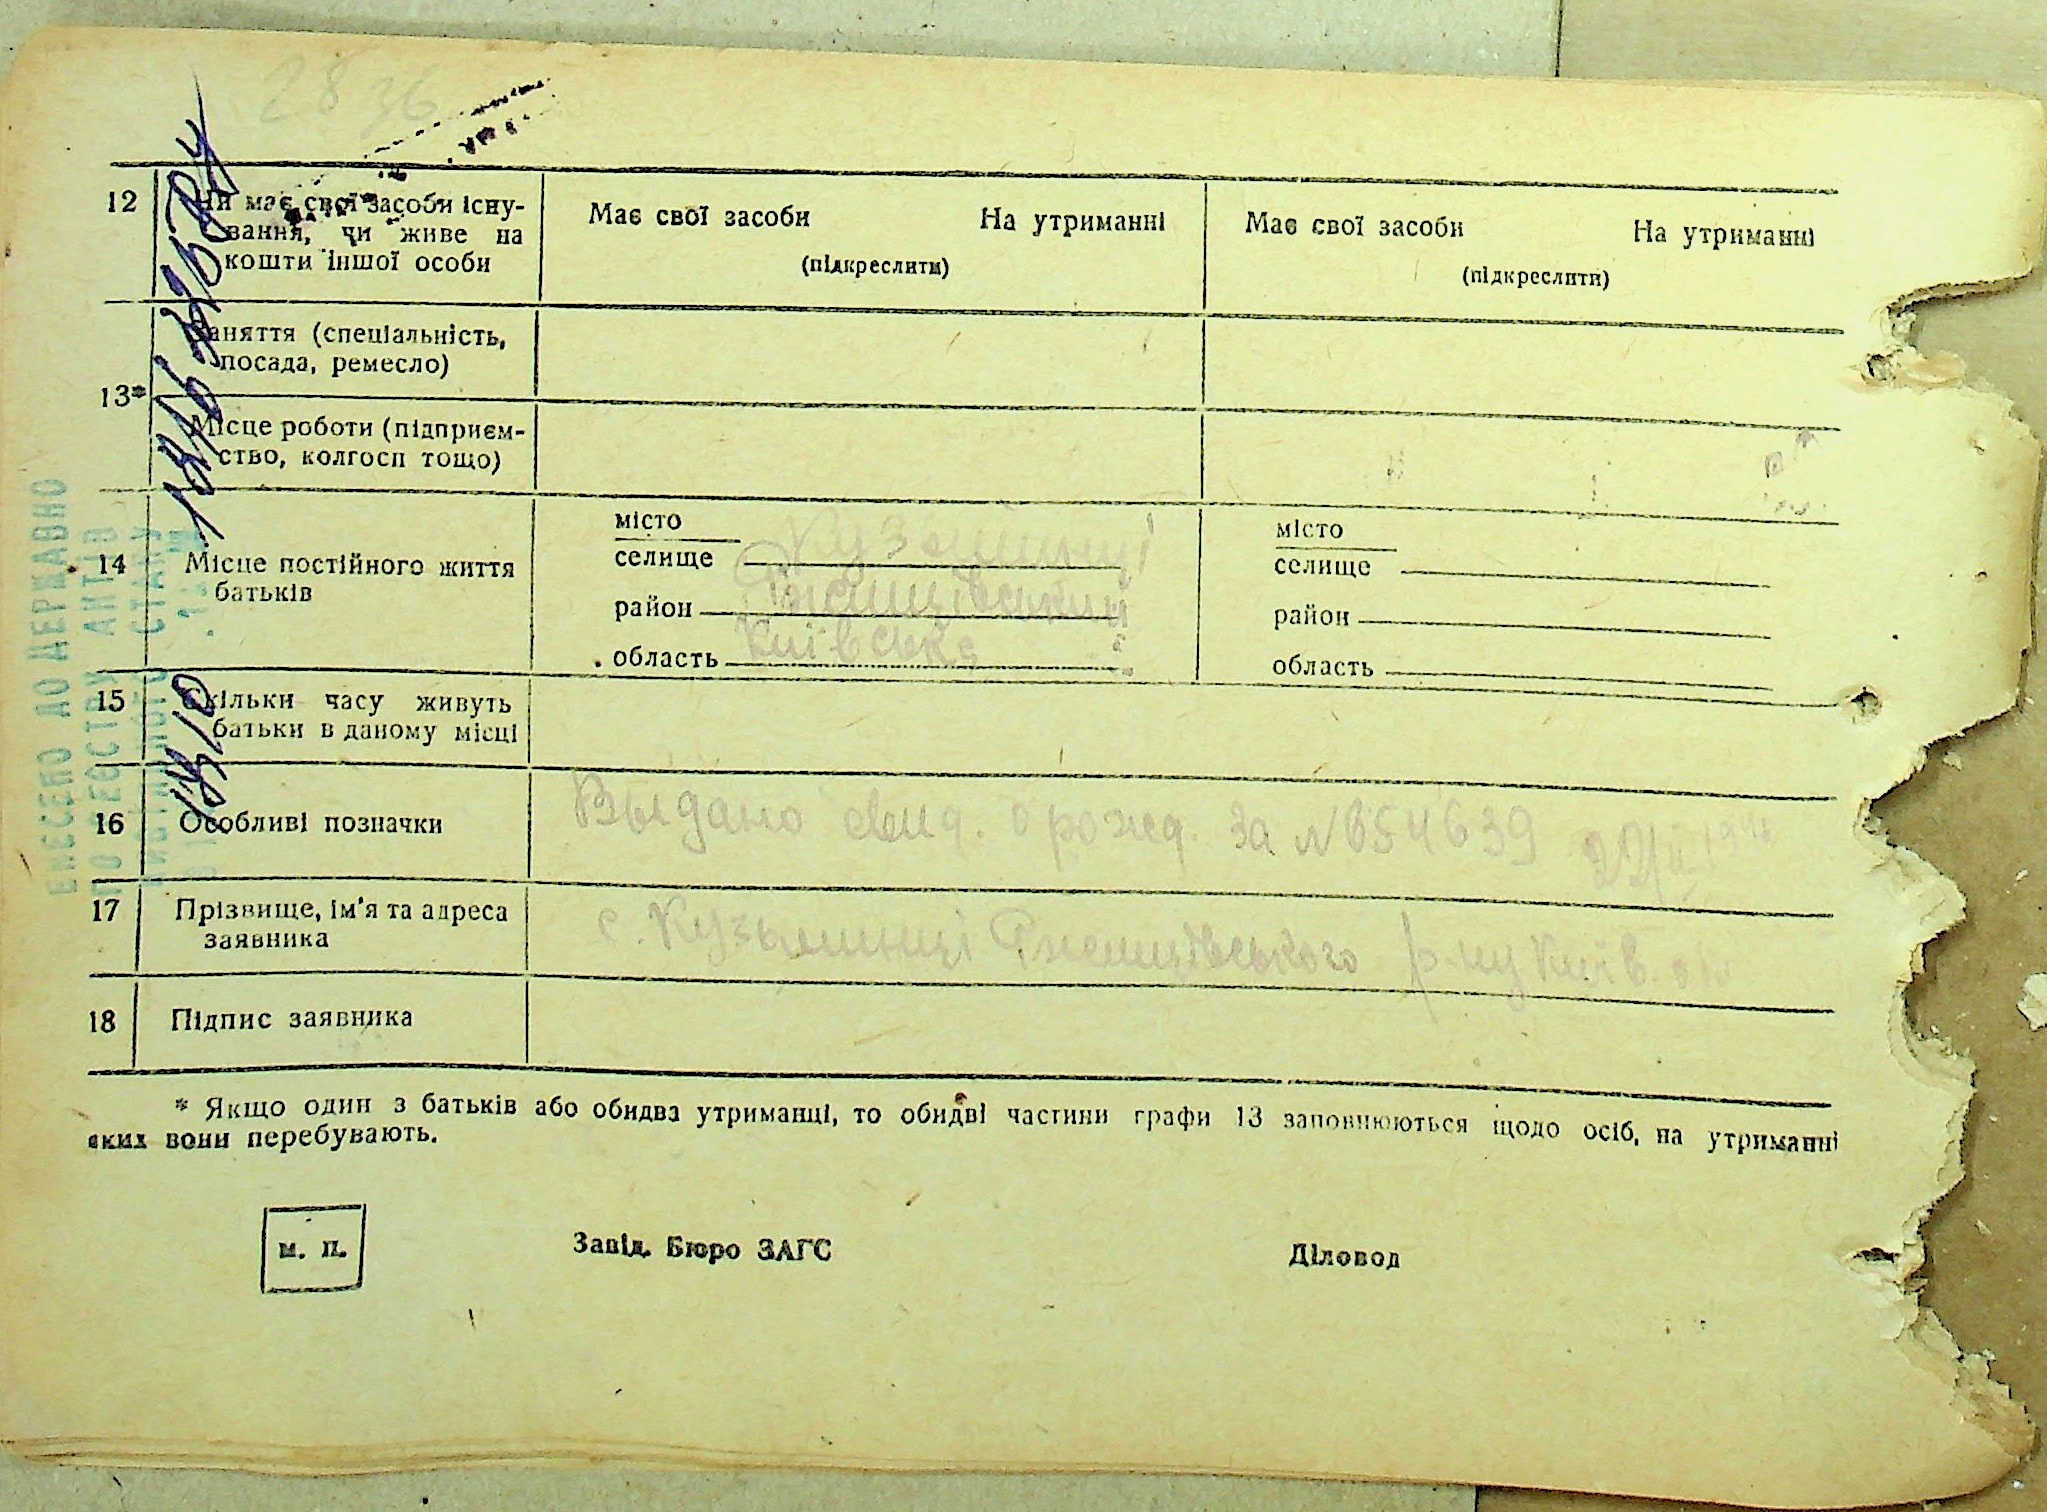 2836
12 Чи має свої засоби існу-
вання, чи живе на
кошти іншої особи
Має свої засоби На утриманні
(підкреслити)
Має свої засоби На утриманні
(підкреслити)
13*
Заняття (спеціальність,
посада, ремесло)
Місце роботи (підприєм-
ство, колгосп тощо)
14 Місце постійного життя
батьків
місто
селище Кузьминці
район Ржищівський
область Київська
місто
селище
район
область
15 Скільки часу живуть
батьки в даному місці
16 Особливі позначки
Выдано свид. о рожд. за №654639 22/
17 Прізвище, ім'я та адреса
заявника
с. Кузьминці Ржищівського р-ну Київ.
18 Підпис заявника
* Якщо один з батьків або обидва утриманці, то обидві частини графи 13 заповнюються щодо осіб, на утриманні
яких вони перебувають.
м. п.
Завід. Бюро ЗАГС
Діловод
ВНЕСЕНО ДО ДЕРЖАВНО
ГО РЕЄСТРУ АКТІВ
СТАНУ